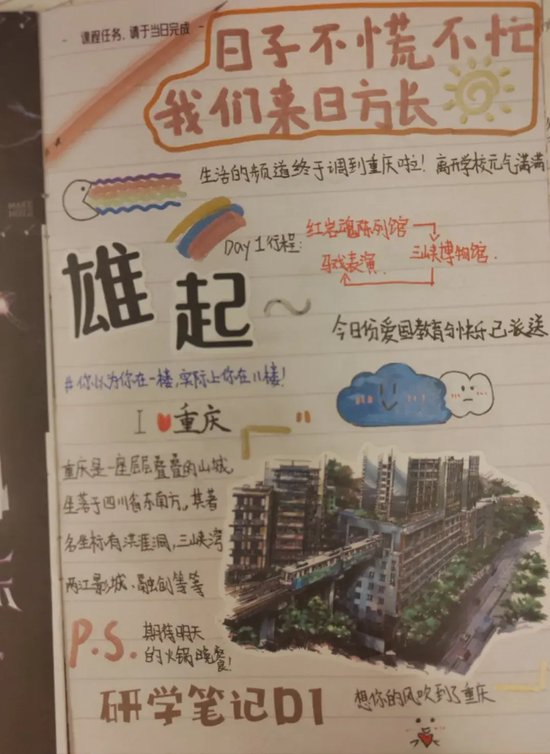 - 课程任务,请于当日完成 -
日子不慌不忙
我们来日方长
生活的频道终于调到重庆啦!离开学校元气满满
Day 1行程:
红岩魂陈列馆
三峡博物馆
马戏表演
雄起~
今日份爱国教育与快乐已派送
#你以为你在一楼,实际上你在儿楼!
I 重庆
重庆是一座层层叠叠的山城,
坐落于四川省东南方。其著
名坐标有洪崖洞,三峡湾
两江影城、融创等等
P.S.
期待明天
的火锅晚餐!
研学笔记D1
想你的风吹到了重庆